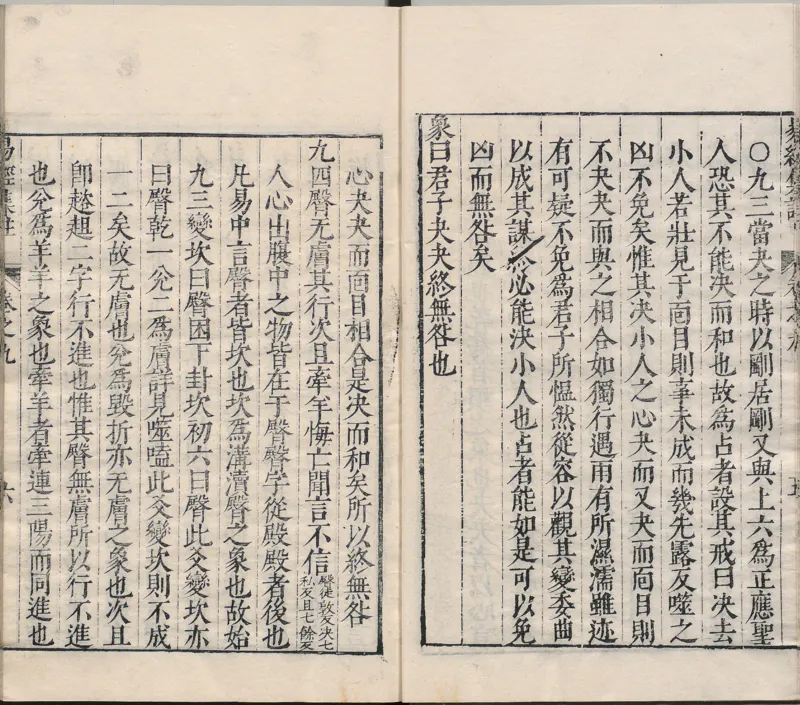 ○九三當夬之時以剛居剛又與上六為正應聖
人恐其不能決而和也故為占者設其戒曰決去
小人若壯見于面目則事未成而幾先露反噬之
凶不免矣惟其決小人之心夬而又夬而面目則
不夬夬而與之相合如獨行遇雨有所濕濡雖迹
有可疑不免為君子所慍然從容以觀其變委曲
以成其謀終必能決小人也占者能如是可以免
凶而無咎矣
象曰君子夬夬終無咎也
心夬夬而面目相合是決而和矣所以終無咎
九四臀无膚其行次且牽羊悔亡聞言不信
臀徒敦反夬七
私反且七餘反
人心出腹中之物皆在于臀臀字從殿殿者後也
凡易中言臀者皆坎也坎為溝瀆臀之象也故姤
九三變坎曰臀困下卦坎初六曰臀此爻變坎亦
曰臀乾一兌二為膚詳見噬嗑此爻變坎則不成
一二矣故无膚也兌為毀折亦无膚之象也次且
即趑趄二字行不進也惟其臀無膚所以行不進
也兌為羊羊之象也牽羊者牽連三陽而同進也
易經集註
卷之九